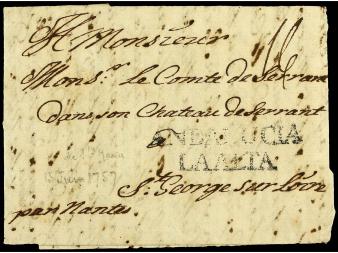 A Monsieur
Mons.r le Comte de Serrant
dans son Chateau de Serrant
ANDALUCIA
LA ALTA
St. George sur Loire
par Nantes